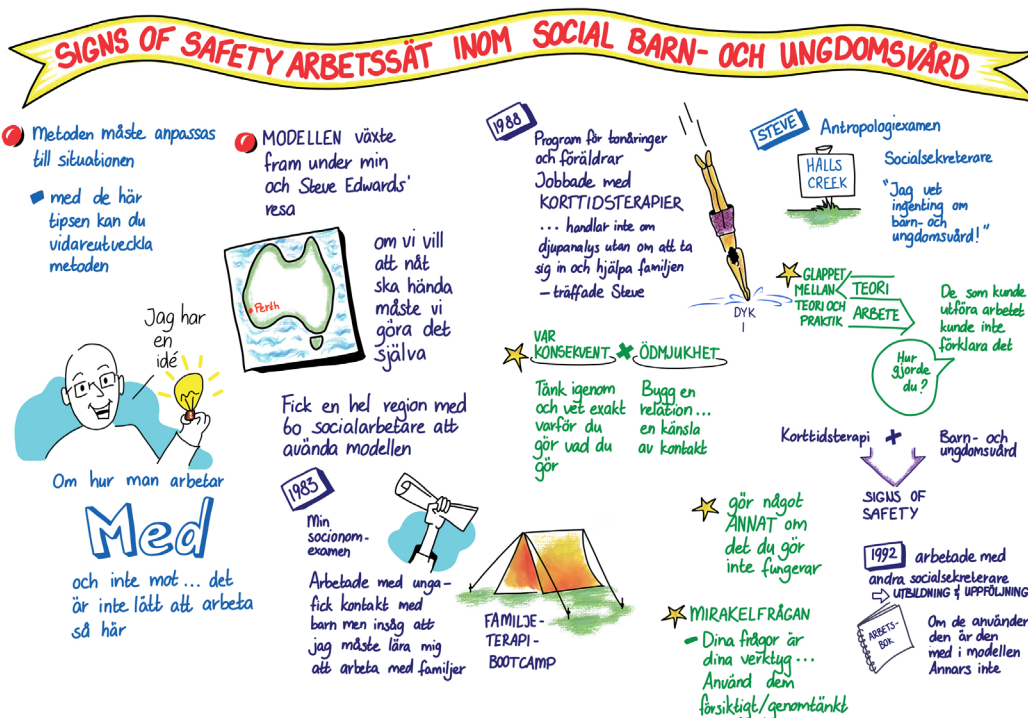 SIGNS OF SAFETY ARBETSSÄT INOM SOCIAL BARN- OCH UNGDOMSVÅRD
Metoden måste anpassas
till situationen
med de här
tipsen kan du
vidareutveckla
metoden
Jag har
en
idé
Om hur man arbetar
Med
och inte mot ... det
är inte lätt att arbeta
så här
MODELLEN växte
fram under min
och Steve Edwards'
resa
Perth
om vi vill
att nåt
ska hända
måste vi
göra det
själva
Fick en hel region med
60 socialarbetare att
använda modellen
1983
Min
socionom-
examen
Arbetade med unga –
fick kontakt med
barn men insåg att
jag måste lära mig
att arbeta med familjer
FAMILJE-
TERAPI-
BOOTCAMP
1988
Program för tonåringar
och föräldrar
Jobbade med
KORTTIDSTERAPIER
... handlar inte om
djupanalys utan om att ta
sig in och hjälpa familjen
– träffade Steve
DYK
I
VAR
KONSEKVENT + ÖDMJUKHET
Tänk igenom
och vet exakt
varför du
gör vad du
gör
Bygg en
relation ...
en känsla
av kontakt
gör något
ANNAT om
det du gör
inte fungerar
MIRAKELFRÅGAN
– Dina frågor är
dina verktyg ...
Använd dem
försiktigt/genomtänkt
STEVE
Antropologiexamen
HALLS
CREEK
Socialsekreterare
"Jag vet
ingenting om
barn- och
ungdomsvård!"
GLAPPET
MELLAN
TEORI OCH
PRAKTIK
TEORI
ARBETE
De som kunde
utföra arbetet
kunde inte
förklara det
Hur
gjorde
du?
Korttidsterapi + Barn- och
ungdomsvård
SIGNS OF
SAFETY
1992 arbetade med
andra socialsekreterare
⇨ UTBILDNING & UPPFÖLJNING
ARBETS-
BOK
Om de använder
den är den
med i modellen
Annars inte